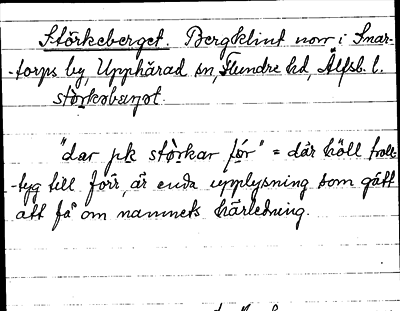 Störkeberget. Bergklint norr i Snar-
-torps by, Upphärad sn, Flundre hd, Älfsb. l.
störkabærjət.
"dar pk störkar för" = där höll troll-
-tyg till förr, är enda upplysning som gått
att få om namnets härledning.